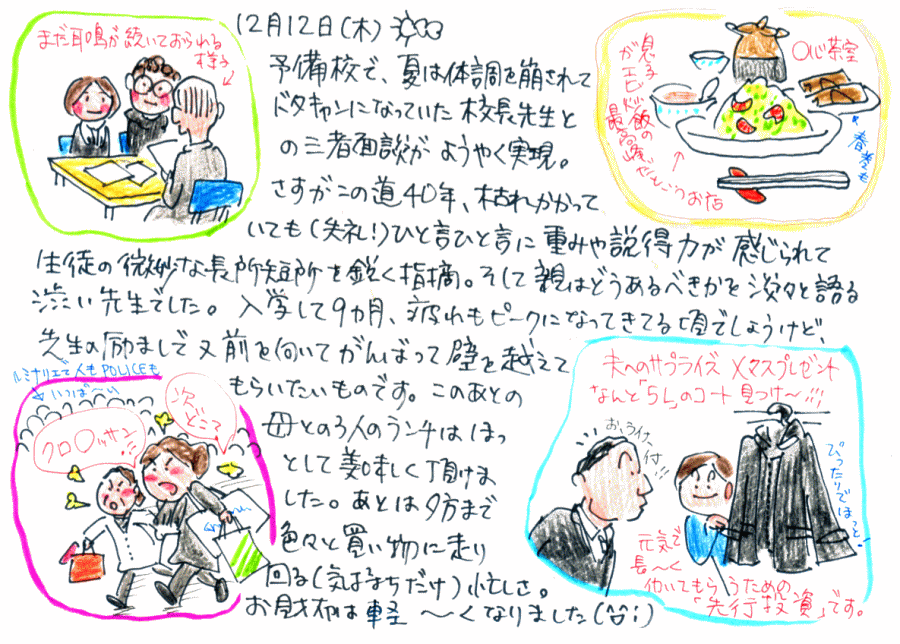 12月12日(木)
予備校で、夏は体調を崩されて
ドタキャンになっていた校長先生と
の三者面談がようやく実現。
さすがこの道40年、枯れかかって
いても(失礼!)ひと言ひと言に重みや説得力が感じられて
生徒の微妙な長所短所を鋭く指摘。そして親はどうあるべきかを淡々と語る
渋い先生でした。入学して9カ月、疲れもピークになってきてる頃でしょうけど、
先生の励ましで又前を向いてがんばって壁を越えて
もらいたいものです。このあとの
母との3人のランチはほっ
として美味しく頂けま
した。あとは夕方まで
色々と買い物に走り
回る(気持ちだけ)忙しさ。
お財布は軽〜くなりました(笑;)
まだ耳鳴が続いておられる
様子
〇心茶室
息子
がエビ炒飯の
最高峰だというお店
春巻も
ルミナリエで人もPOLICEも
いっぱーい
クロ〇ッサン!!
次どこ?
夫へのサプライズXマスプレゼント
なんと「5L」のコート見つけ〜!!!
おぃ、ラィ付ー付!!
ぴったりでほっと!
元気で
長〜く
働いてもらうための
「先行投資」です。